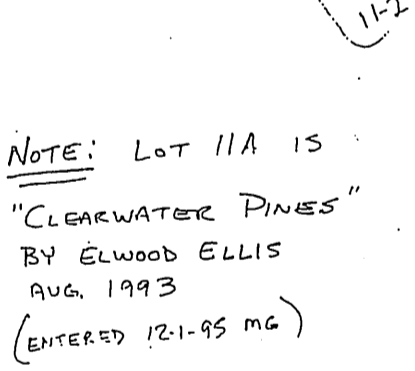 11-2
NOTE: LOT 11A IS
"CLEARWATER PINES"
BY ELWOOD ELLIS
AUG. 1993
(ENTERED 12-1-95 MG)